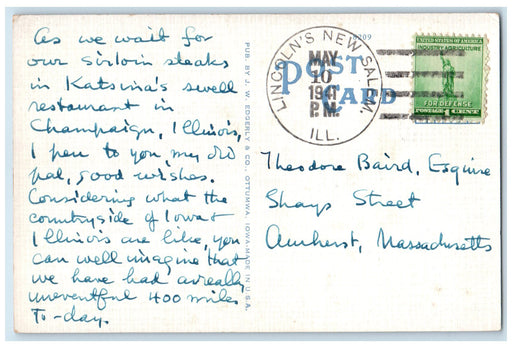 As we wait for
our sirloin steaks
in Katsina's swell
restaurant in
Champaign, Illinois,
I pen to you, my old
pal, good wishes.
Considering what the
countryside of Iowa &
Illinois are like, you
can well imagine that
we have had a really
uneventful 400 miles
to-day.
PUB. BY J. W. EDGERLY & CO., OTTUMWA, IOWA MADE IN U.S.A.
POST
CARD
LINCOLN'S NEW SALEM,
MAY
10
1941
P.M.
ILL.
UNITED STATES OF AMERICA
INDUSTRY AGRICULTURE
FOR DEFENSE
Theodore Baird, Esquire
Shays Street
Amherst, Massachusetts